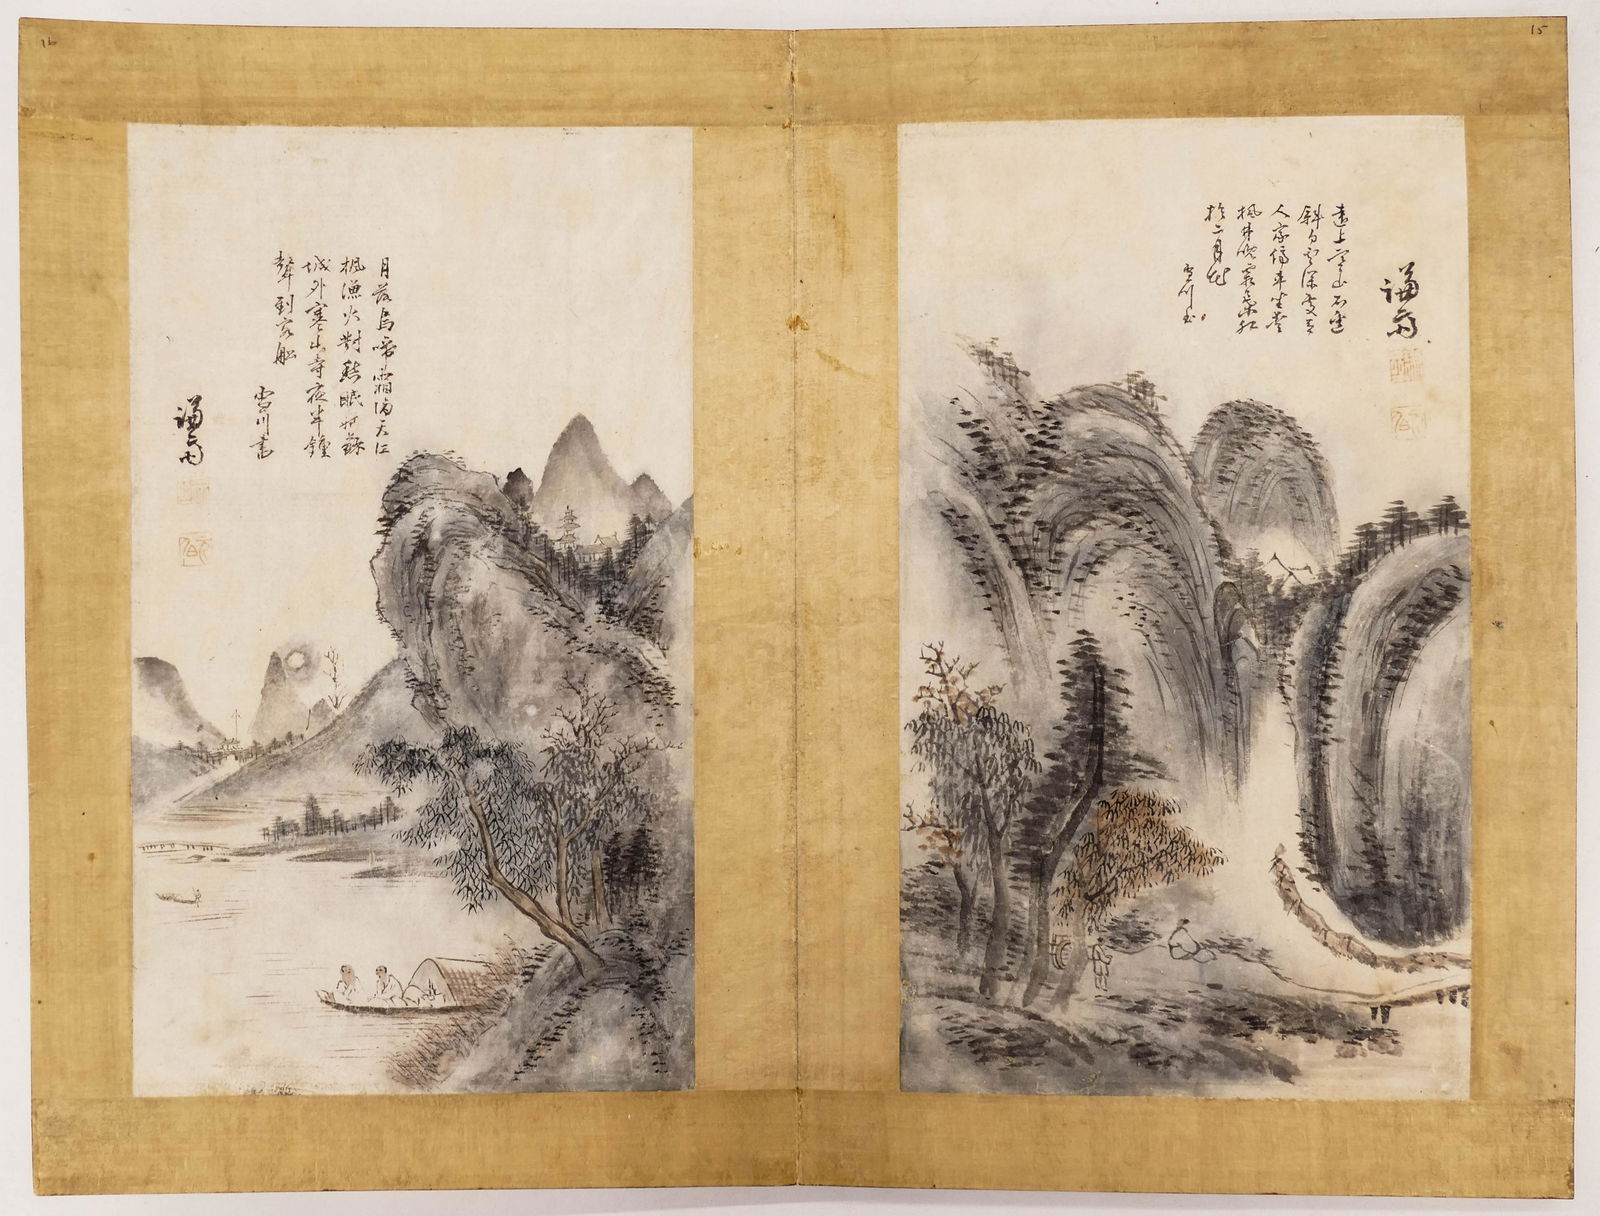 15
謙齋
遠上寒山石逕
斜白雲深處有
人家停車坐愛
楓林晩霜葉紅
於二月花
雪川書
16
月落烏啼霜滿天江
楓漁火對愁眠姑蘇
城外寒山寺夜半鍾
聲到客船
雪川書
謙齋